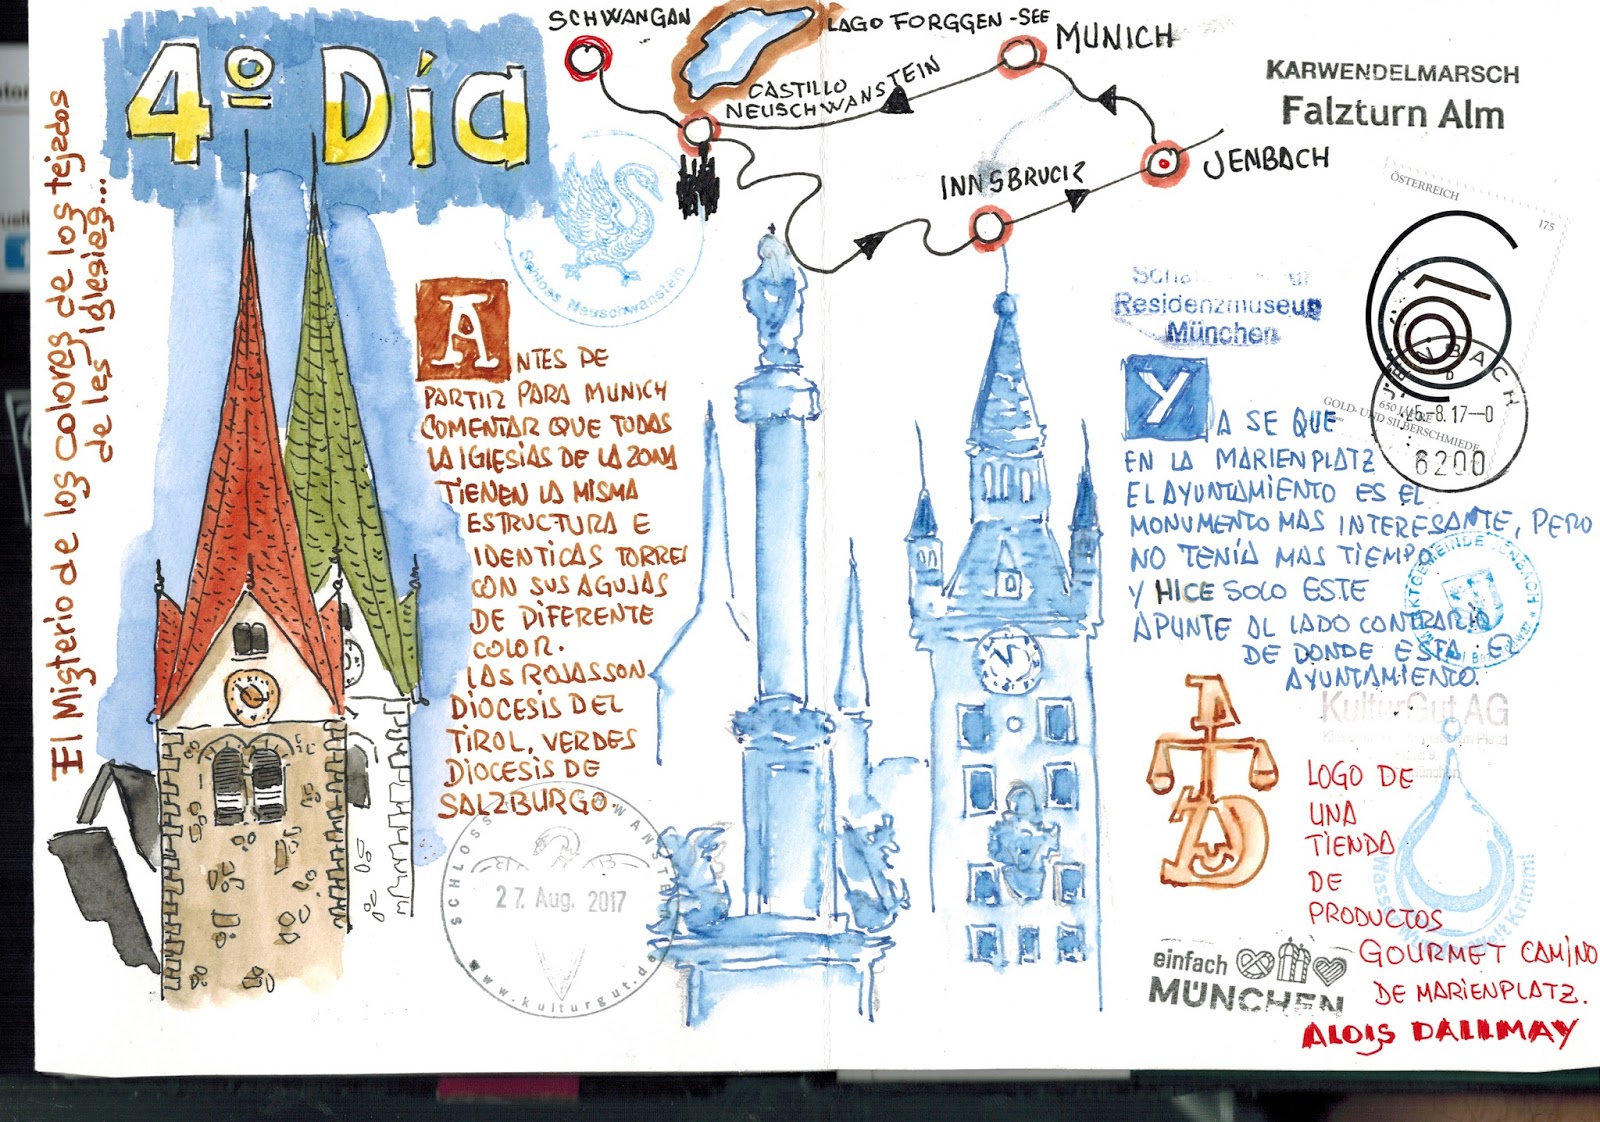 4º Día
El Misterio de los colores de los tejados
de les iglesies...
SCHWANGAN
LAGO FORGGEN-SEE
MUNICH
CASTILLO
NEUSCHWANSTEIN
INNSBRUCK
JENBACH
Schloss Neuschwanstein
KARWENDELMARSCH
Falzturn Alm
ÖSTERREICH
175
650 JAHRE
GOLD- UND SILBERSCHMIEDE
JENBACH
25.-8.17-0
6200
Residenzmuseum
München
ANTES DE
PARTIR PARA MUNICH
COMENTAR QUE TODAS
LA IGLESIAS DE LA ZONA
TIENEN LA MISMA
ESTRUCTURA E
IDENTICAS TORRES
CON SUS AGUJAS
DE DIFERENTE
COLOR.
LAS ROJAS SON
DIOCESIS DEL
TIROL, VERDES
DIOCESIS DE
SALZBURGO.
SCHLOSS NEUSCHWANSTEIN
27. Aug. 2017
www.kulturgut.de
YA SE QUE
EN LA MARIENPLATZ
EL AYUNTAMIENTO ES EL
MONUMENTO MAS INTERESANTE, PERO
NO TENÍA MAS TIEMPO
Y HICE SOLO ESTE
APUNTE AL LADO CONTRARIO
DE DONDE ESTA EL
AYUNTAMIENTO.
MARKTGEMEINDE JENBACH
KulturGut AG
LOGO DE
UNA
TIENDA
DE
PRODUCTOS
GOURMET CAMINO
DE MARIENPLATZ.
ALOIS DALLMAY
A D
einfach
MÜNCHEN